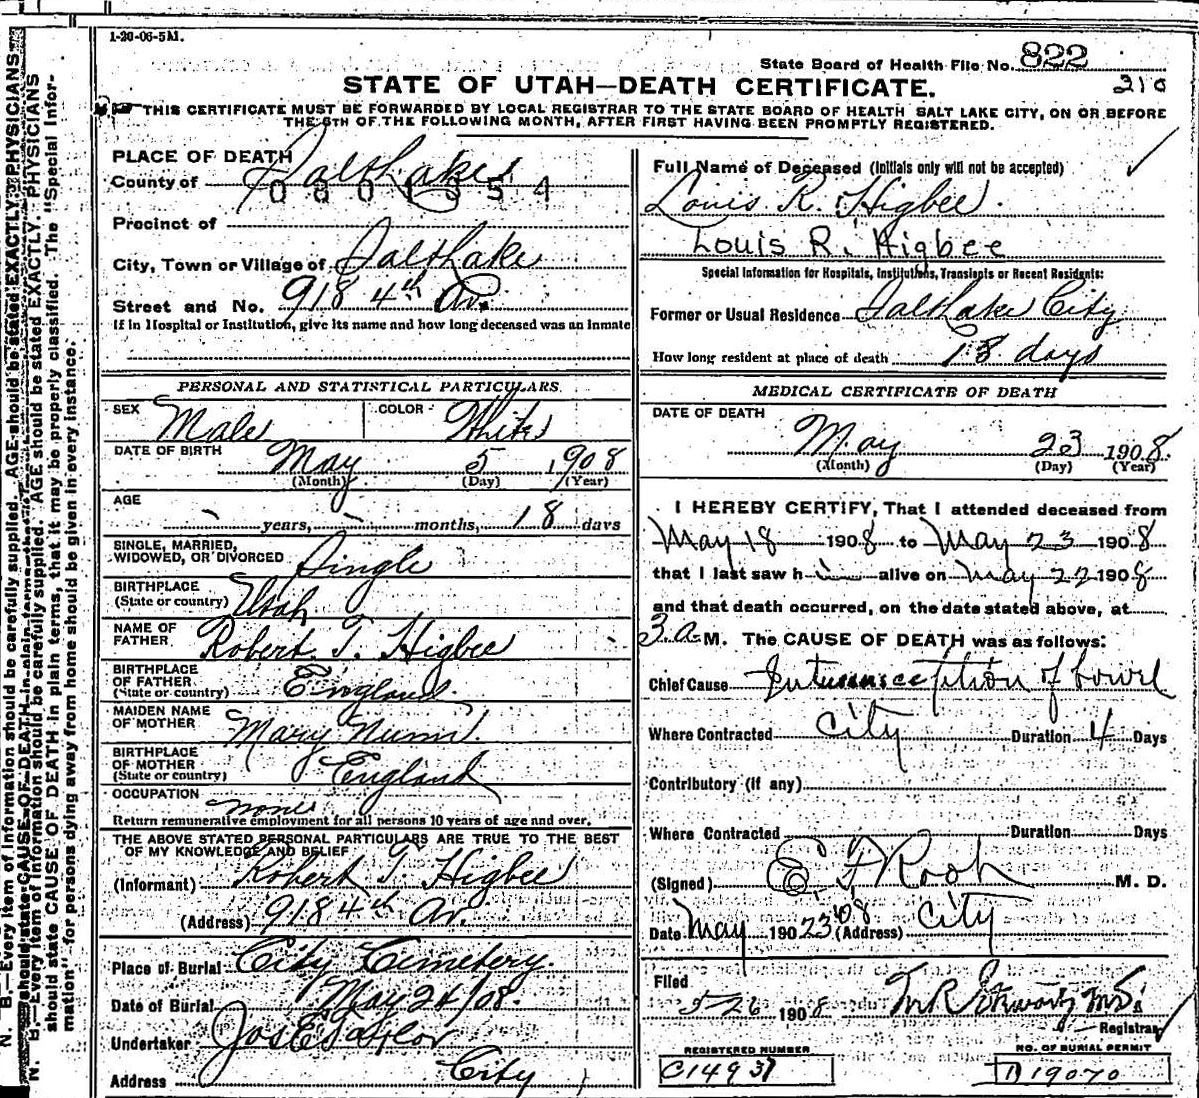 1-20-06-5M.
State Board of Health File No. 822
STATE OF UTAH—DEATH CERTIFICATE.
210
THIS CERTIFICATE MUST BE FORWARDED BY LOCAL REGISTRAR TO THE STATE BOARD OF HEALTH SALT LAKE CITY, ON OR BEFORE
THE 5TH OF THE FOLLOWING MONTH, AFTER FIRST HAVING BEEN PROMPTLY REGISTERED.
PLACE OF DEATH
County of Salt Lake
Precinct of
City, Town or Village of Salt Lake
Street and No. 918 4th Av.
If in Hospital or Institution, give its name and how long deceased was an inmate
Full Name of Deceased (Initials only will not be accepted)
Louis R. Higbee.
Louis R. Higbee
Special Information for Hospitals, Institutions, Transients or Recent Residents:
Former or Usual Residence Salt Lake City
How long resident at place of death 18 days
PERSONAL AND STATISTICAL PARTICULARS.
SEX Male COLOR White
DATE OF BIRTH May 5 1908
(Month) (Day) (Year)
AGE
- years, - months, 18 days
SINGLE, MARRIED,
WIDOWED, OR DIVORCED Single
BIRTHPLACE
(State or country) Utah
NAME OF
FATHER Robert T. Higbee
BIRTHPLACE
OF FATHER
(State or country) England.
MAIDEN NAME
OF MOTHER Mary Nunn.
BIRTHPLACE
OF MOTHER
(State or country) England
OCCUPATION none
Return remunerative employment for all persons 10 years of age and over.
THE ABOVE STATED PERSONAL PARTICULARS ARE TRUE TO THE BEST
OF MY KNOWLEDGE AND BELIEF
(Informant) Robert T. Higbee
(Address) 918 4th Av.
Place of Burial City Cemetery.
Date of Burial May 24/08.
Undertaker Jos E Taylor
Address City
MEDICAL CERTIFICATE OF DEATH
DATE OF DEATH
May 23 1908.
(Month) (Day) (Year)
I HEREBY CERTIFY, That I attended deceased from
May 18 1908 to May 23 1908
that I last saw h i alive on May 22 1908
and that death occurred, on the date stated above, at
3 a M. The CAUSE OF DEATH was as follows:
Chief Cause Intussusception of bowel
Where Contracted City Duration 4 Days
Contributory (if any)
Where Contracted Duration Days
(Signed) E. F. Root M. D.
Date May 190 23'08 (Address) City
Filed
5-26 1908
Registrar
REGISTERED NUMBER
C14937
NO. OF BURIAL PERMIT
D 19070
N. B.—Every item of information should be carefully supplied. AGE should be stated EXACTLY. PHYSICIANS
should state CAUSE OF DEATH in plain terms, that it may be properly classified. The "Special Infor-
mation" for persons dying away from home should be given in every instance.